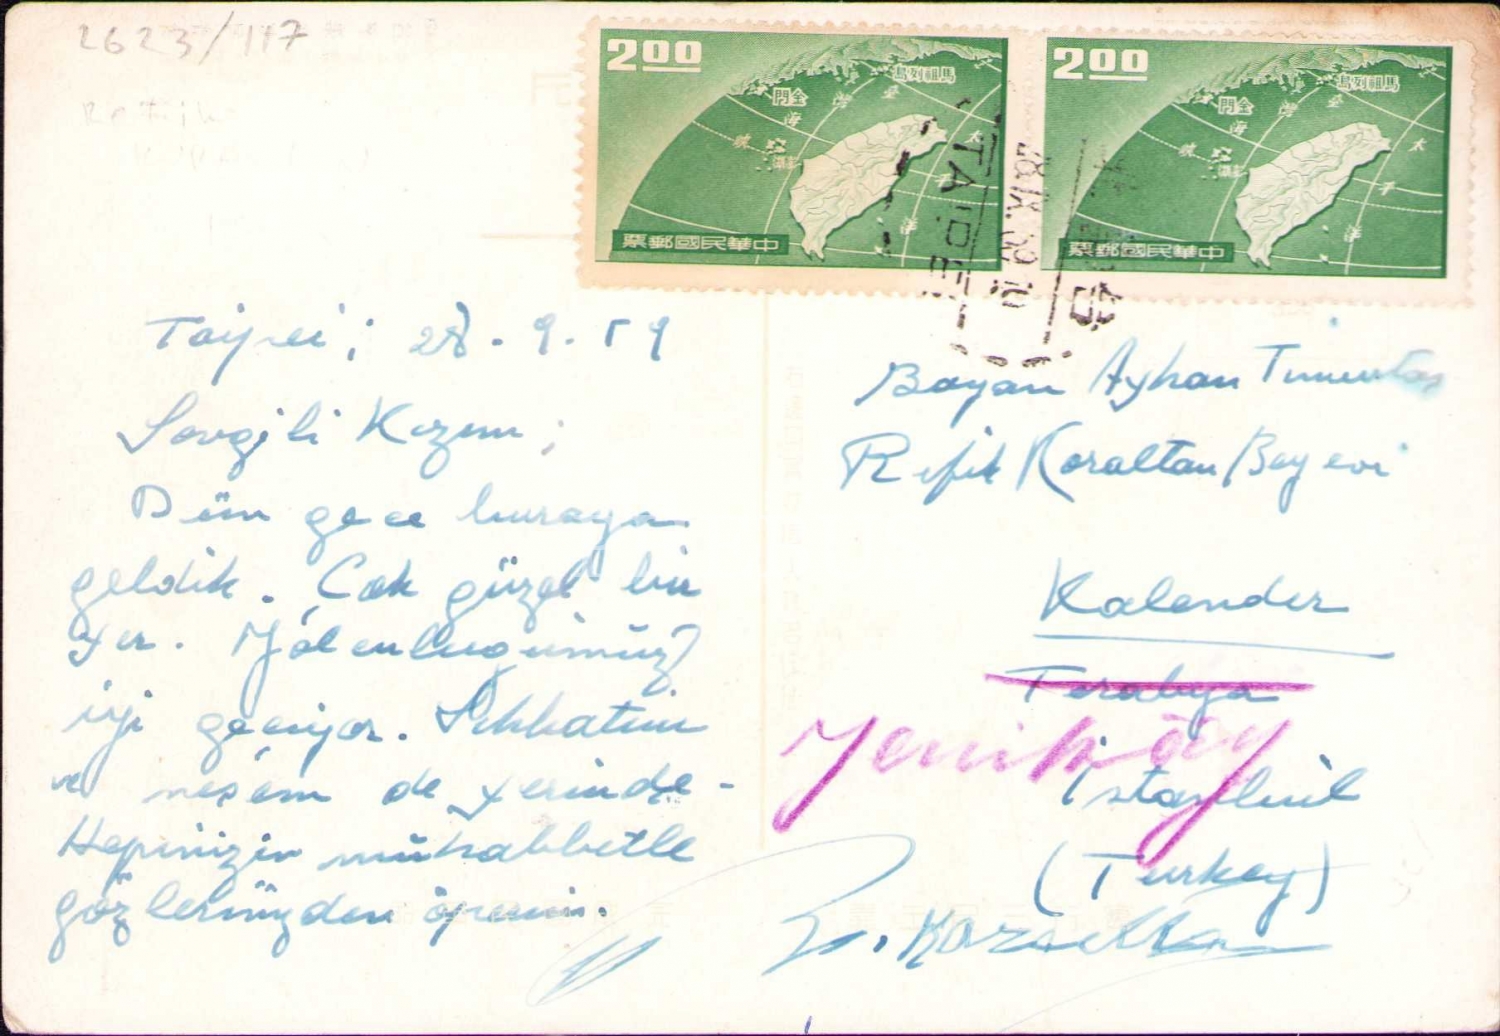 2623/117
Refik
2.00
馬祖列島
金門
臺
海
峽
澎湖
太
平
洋
中華民國郵票
2.00
馬祖列島
金門
臺
海
峽
澎湖
太
平
洋
中華民國郵票
TAIPEI
28.IX.59.10
Taipei; 28.9.59
Sevgili Kızım;
Dün gece buraya
geldik. Çok güzel bir
yer. Yolculuğumuz
iyi geçiyor. Sıhhatim
ve neş'em de yerinde-
Hepinizin muhabbetle
gözlerinizden öperim.
Bayan Ayhan Timurtaş
Refik Koraltan Bey evi
Kalender
Tarabya
Yeniköy
İstanbul
(Turkey)
R. Koraltan